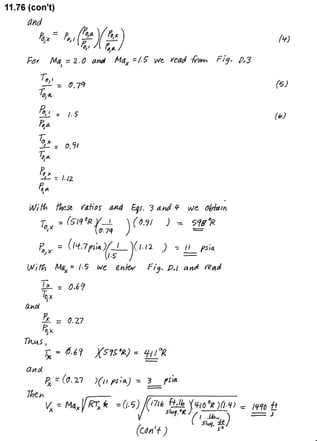 11.76 (con't)
and
P₀,ₓ = P₀,₁ (P₀,ₐ / P₀,₁)(P₀,ₓ / P₀,ₐ) (4)
For Ma₁ = 2.0 and Maₓ = 1.5 we read from Fig. D.3
T₀,₁ / T₀,ₐ = 0.79 (5)
P₀,₁ / P₀,ₐ = 1.5 (6)
T₀,ₓ / T₀,ₐ = 0.91
P₀,ₓ / P₀,ₐ = 1.12
With these ratios and Eqs. 3 and 4 we obtain
T₀,ₓ = (519 °R)(1 / 0.79)(0.91) = 598 °R
P₀,ₓ = (14.7 psia)(1 / 1.5)(1.12) = 11 psia
With Maₓ = 1.5 we enter Fig. D.1 and read
Tₓ / T₀,ₓ = 0.69
and
Pₓ / P₀,ₓ = 0.27
Thus,
Tₓ = (0.69)(595 °R) = 411 °R
and
Pₓ = (0.27)(11 psia) = 3 psia
Then
Vₓ = Maₓ √(RTₓ k) = (1.5) √((1716 ft.lb / slug.°R)(410 °R)(1.4) / (1 lb / slug. ft/s²)) = 1490 ft/s
(con't)